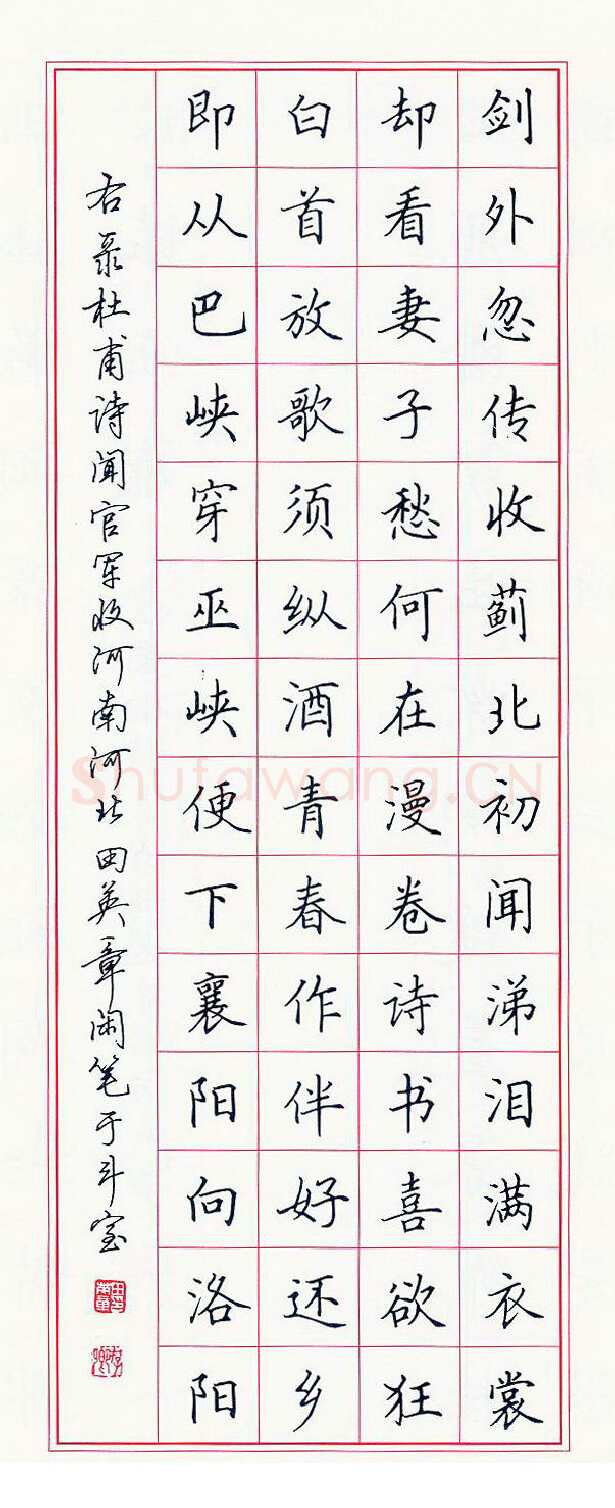 剑外忽传收蓟北初闻涕泪满衣裳
却看妻子愁何在漫卷诗书喜欲狂
白首放歌须纵酒青春作伴好还乡
即从巴峡穿巫峡便下襄阳向洛阳
右录杜甫诗闻官军收河南河北田英章闲笔于斗室
田英章
Shufawang.CN